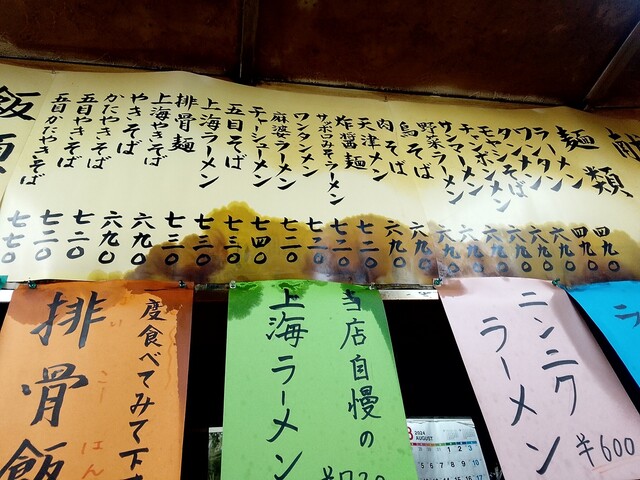 麺類
ラーメン 四九〇
ワンタン 四九〇
タンメン 六九〇
モヤシそば 六九〇
チャンポンメン 六九〇
サンマーメン 六九〇
野菜ラーメン 六九〇
鳥そば 六九〇
肉そば 六九〇
天津メン 六九〇
炸醤麺 七二〇
サッポロみそラーメン 七二〇
ワンタンメン 七二〇
麻婆ラーメン 七二〇
チャーシューメン 七四〇
五目そば 七三〇
上海ラーメン 七三〇
排骨麺 七三〇
上海やきそば 六九〇
やきそば 六九〇
かたやきそば 七二〇
五目やきそば 七二〇
五目かたやきそば 七七〇
飯類
ニンニク
ラーメン
¥600
当店自慢の
上海ラーメン
一度食べてみて下
排骨飯
こー
はん
2024
AUGUST
1 2 3
5 6 7 8 9 10